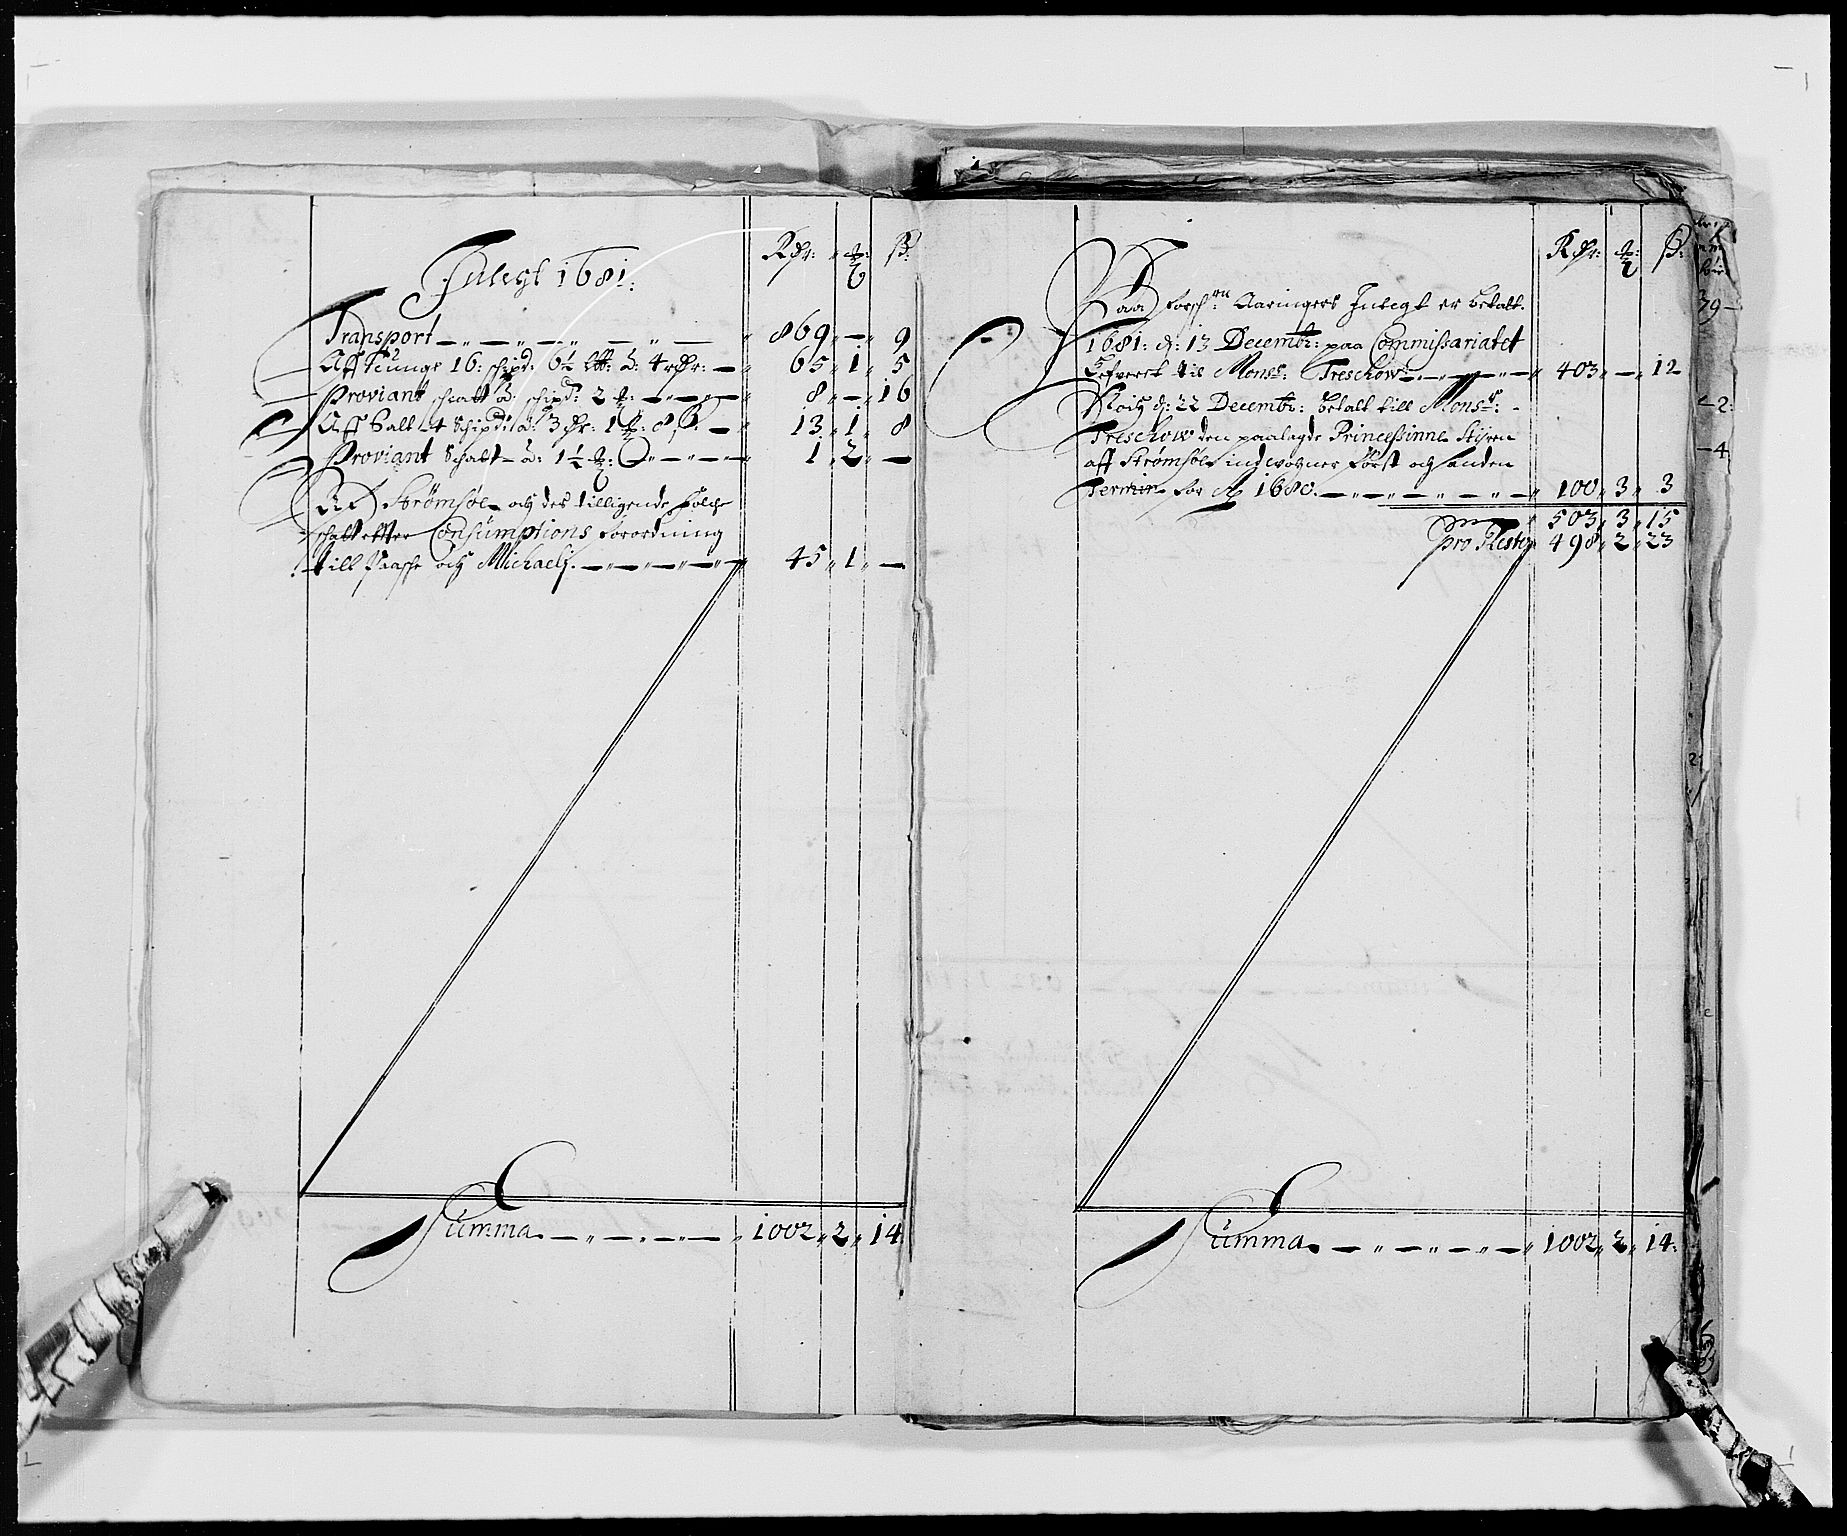 Indegt 1681:
Rdr: ß:
Transport 869 — 9
Aff Tiunge 16: schipd: 6½ à: 4 rdr: 65 1 5
Proviant schatt à: schipd: 2 8 — 16
Aff Salt 4 Schipd: à: 3 dr: 1 8 ß: 13 1 8
Proviant Schatt à: 1½ 1 2 —
Aff Strømsøe och des tilligende Folche
schatt effter Consumptions forordning
till Paasche och Michaelj. 45 1 —
Summa 1002 2 14
Rdr: ß:
Paa forschne Aaringers Indegt er betalt.
1681: d: 13 Decembr: paa Commissariatet
Lefveret til Monsr: Treschow 403 — 12
Noch d: 22 Decembr: betalt till Monsr:
Treschow den paalagde Princessinne Styren
aff Strømsøe indwogner først och anden
Termin for Ao 1680. 100 3 3
503 3 15
pro Rester 498 2 23
Summa 1002 2 14: